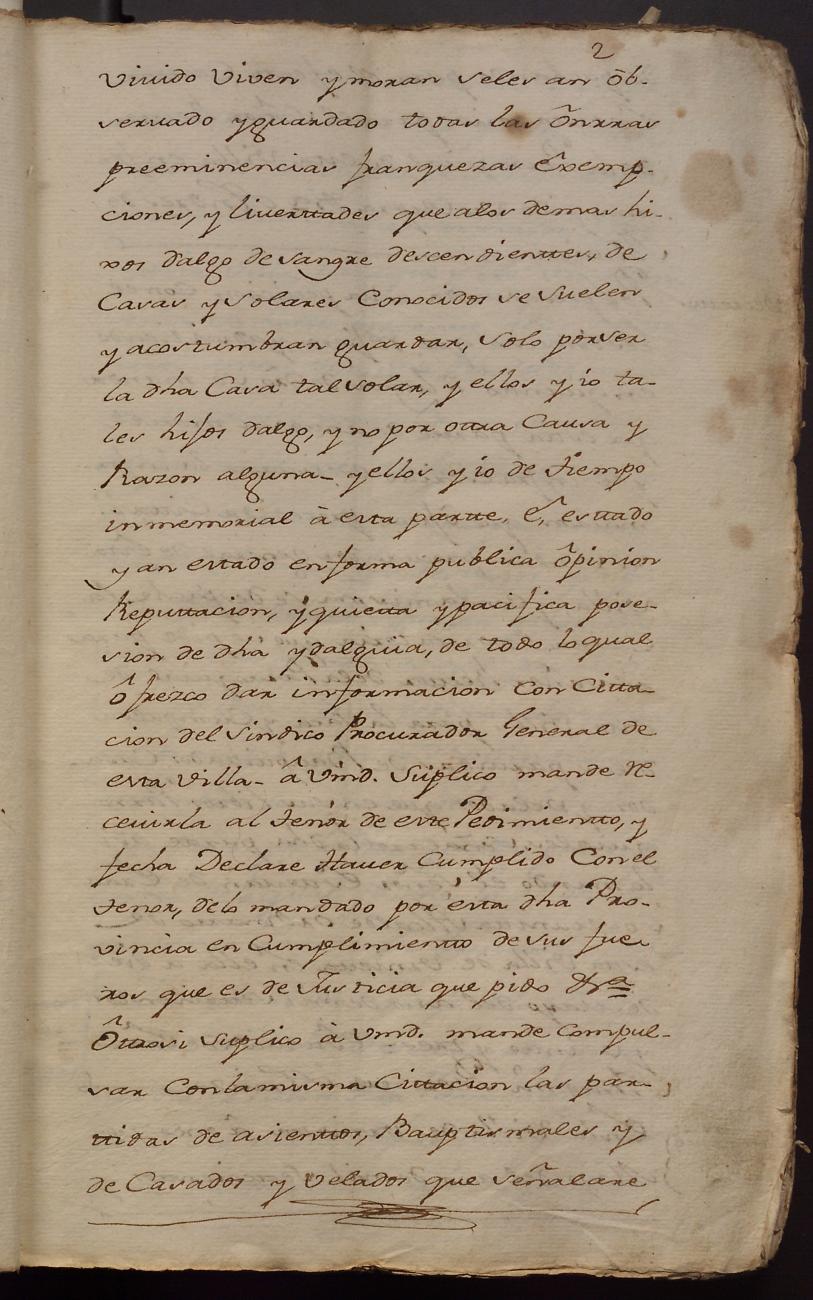 2
viuido viven y moran seles an ôb-
seruado y guardado todas las ônrras
preeminencias franquezas êxemp-
ciones, y liuerttades que alos demas hi-
xos dalgo de sangre descendienttes, de
Casas y Solares Conocidos se suelen
y acostumbran guardar, solo por ser
la dha Casa tal solar, y ellos y io ta-
les hijos dalgo, y no por ottra Causa y
Razon alguna- y ellos y io de tiempo
inmemorial â esta partte, ê, esttado
y an estado en forma publica ôpinion
Reputtacion, y quietta y pacifica pose-
sion de dha ydalguia, de todo lo qual
ôfrezco dar informacion con Citta-
cion del sindico Procurador General de
esta villa- â Vmd. Suplico mande re-
ceuirla al tenor de este Pedimientto, y
fecha Declare Hauer Cumplido Con el
tenor, delo mandado por esta dha Pro-
vincia en Cumplimientto de sus fue-
ros que es de Justicia que pido &ra
Ôttrosi suplico â Vmd. mande compul-
sar Con la misma Cittacion las par-
ttidas de asienttos, Bauptismales y
de Casados y Velados que señalare